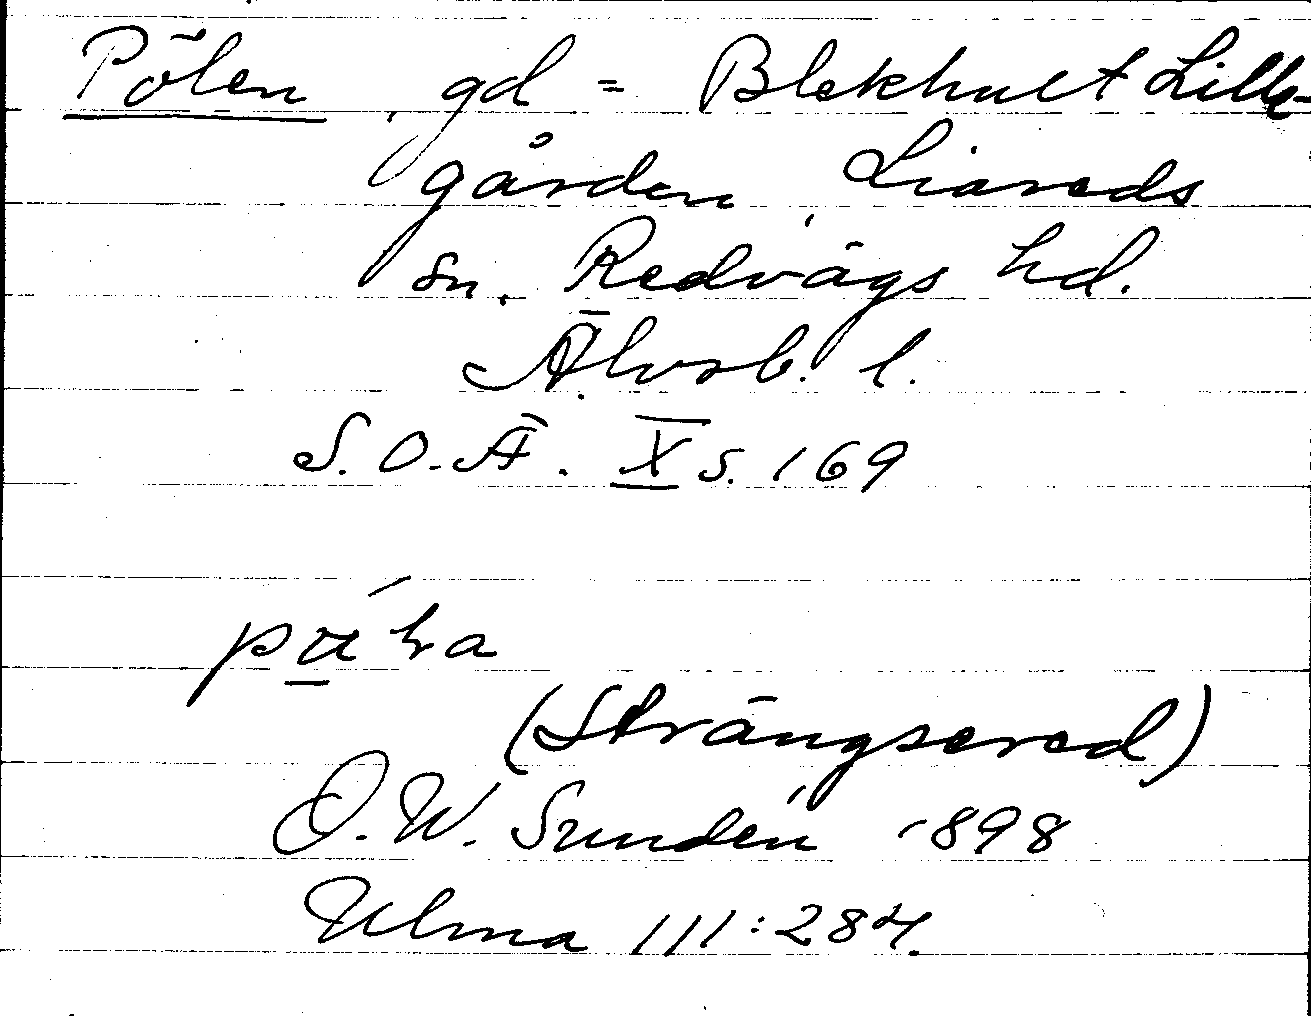 Pölen, gd = Blekhult Lille-
gården, Liareds
sn. Redvägs hd.
Älvsb. l.
S. O. Ä. X s. 169
(Strängsered)
D. W. Sundén 1898
Ulma 111:284.